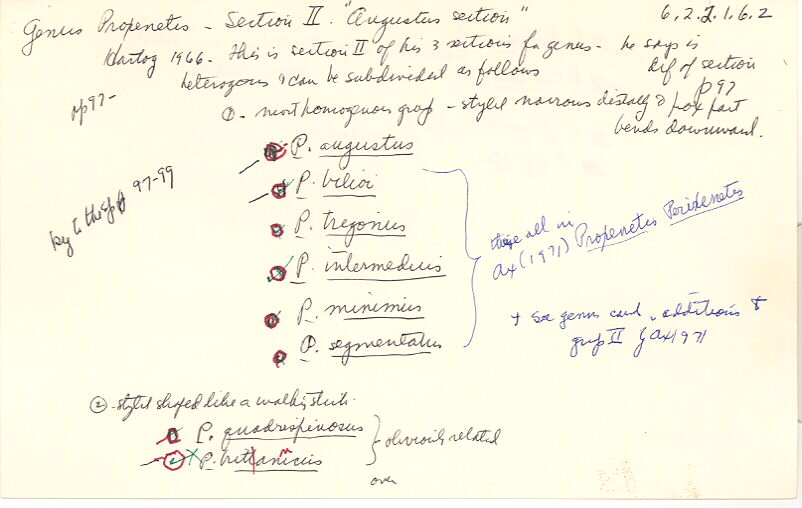 Genus Propenetes - Section II. "Augustus section"
6.2.2.1.6.2
Hartog 1966 - this is section II of his 3 sections for genus - he says is
heterogenous & can be subdivided as follows
dif of section
p97
pp97-
① - most homogenous group - stylet narrows distally & prox part
bends downward.
P. augustus
key to the spp 97-99
P. bilioi
P. tregonius
these all in
Ax (1971) Propenetes Perixenetes
P. intermedius
P. minimus
+ See genus card, additions to
group II of Ax 1971
P. segmentatus
② - stylet shaped like a walking stick.
P. quadrispinosus
obviously related
P. brittanicus
over